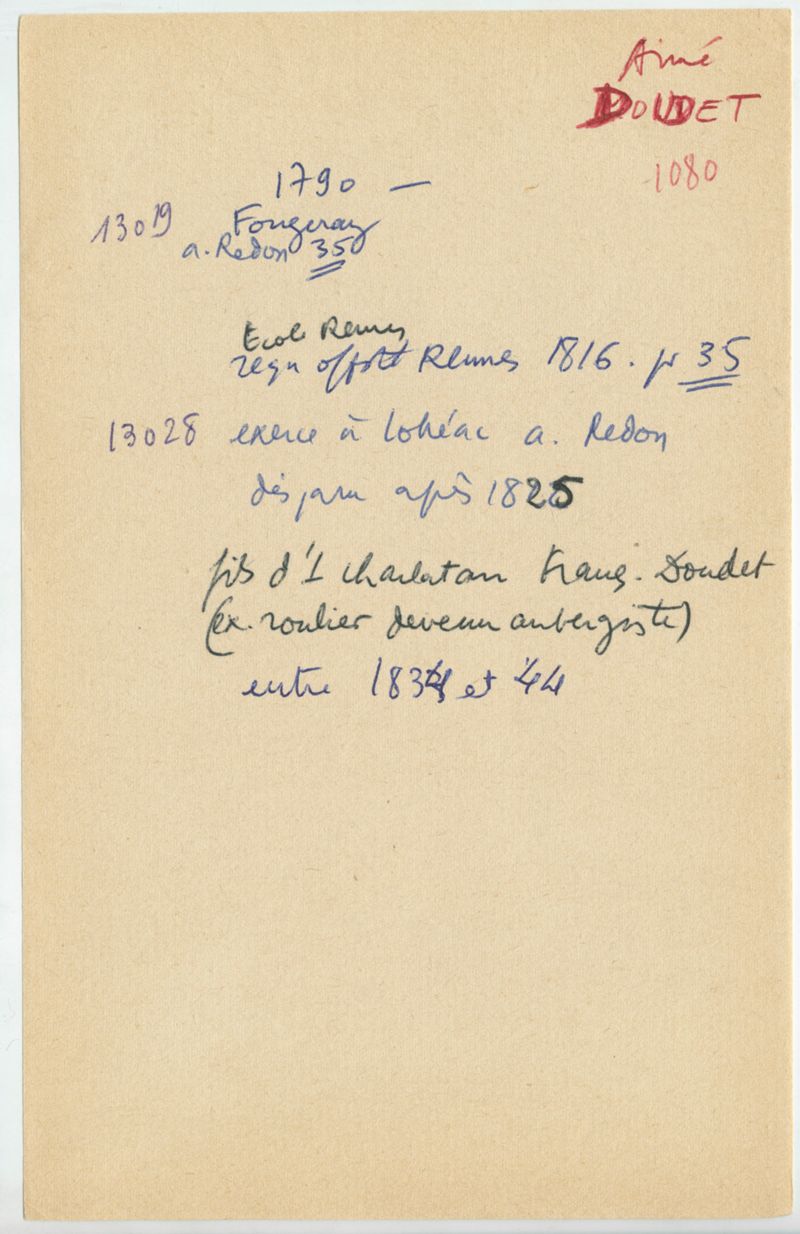 Aimé
DOUDET
1080
1790 —
13019 Fougeray
a. Redon 35
Ecole Rennes
reçu offst Rennes 1816. pr 35
13028 exerce à Lohéac a. Redon
disparu après 1825
fils d'1 charlatan Franç. Doudet
(ex. roulier devenu aubergiste)
entre 1834 et 44